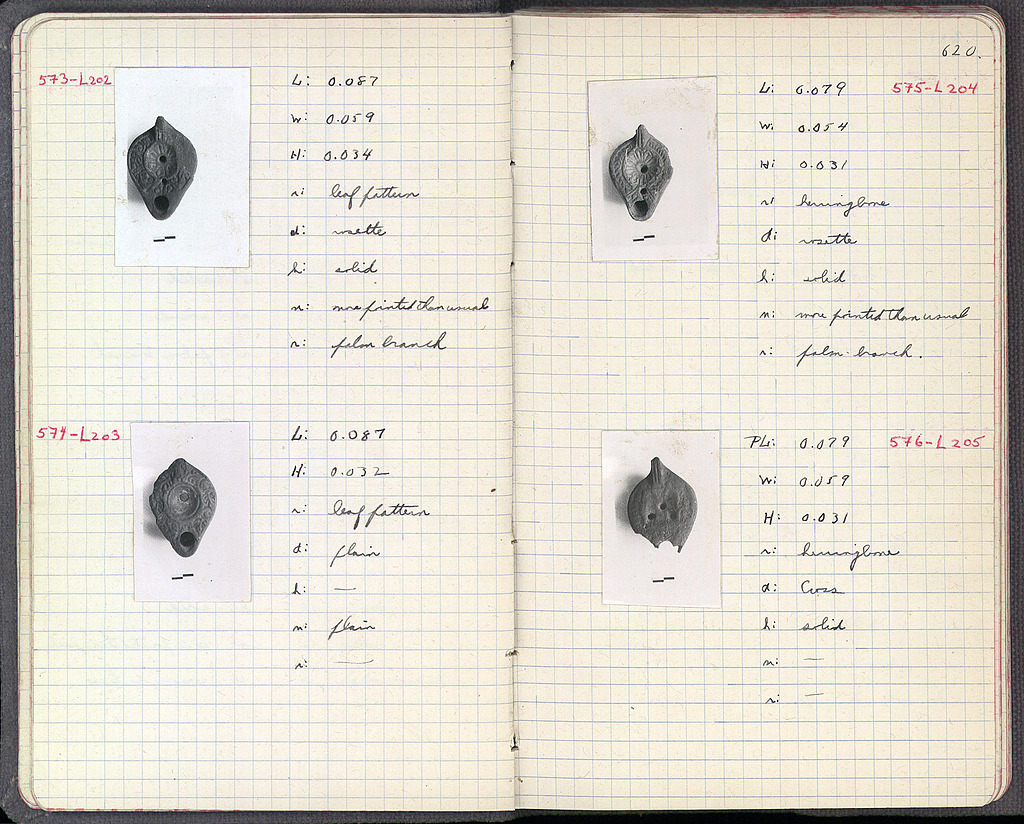 573-L202
L: 0.087
W: 0.059
H: 0.034
r: leaf pattern
d: rosette
h: solid
n: more pointed than usual
r: palm branch
574-L203
L: 0.087
H: 0.032
r: leaf pattern
d: plain
h: —
n: plain
r: —
620.
575-L204
L: 0.079
W: 0.054
H: 0.031
r: herringbone
d: rosette
h: solid
n: more pointed than usual
r: palm-branch.
576-L205
PL: 0.079
W: 0.059
H: 0.031
r: herringbone
d: Cross
h: solid
n: —
r: —